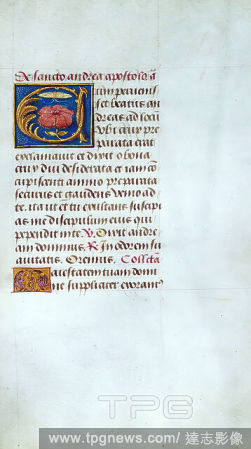 De sancto andrea apostolo ā
Cum pervenis
set beatus an
dreas ad locū
ubi crux pre
parata erat
exclamavit et dixit o bona
crux diu desiderata et iam cō
cupiscenti animo preparata
securus et gaudens venio ad
te. ita ut et tu exultans suscipi
as me discipulum eius qui
pependit in te. V. Dilexit andre
am dominus. R. In odorem su
avitatis. Oremus. Collecta
Maiestatem tuam domi
ne suppliciter exoram⁹
TPG
www.tpgnews.com/ 達志影像